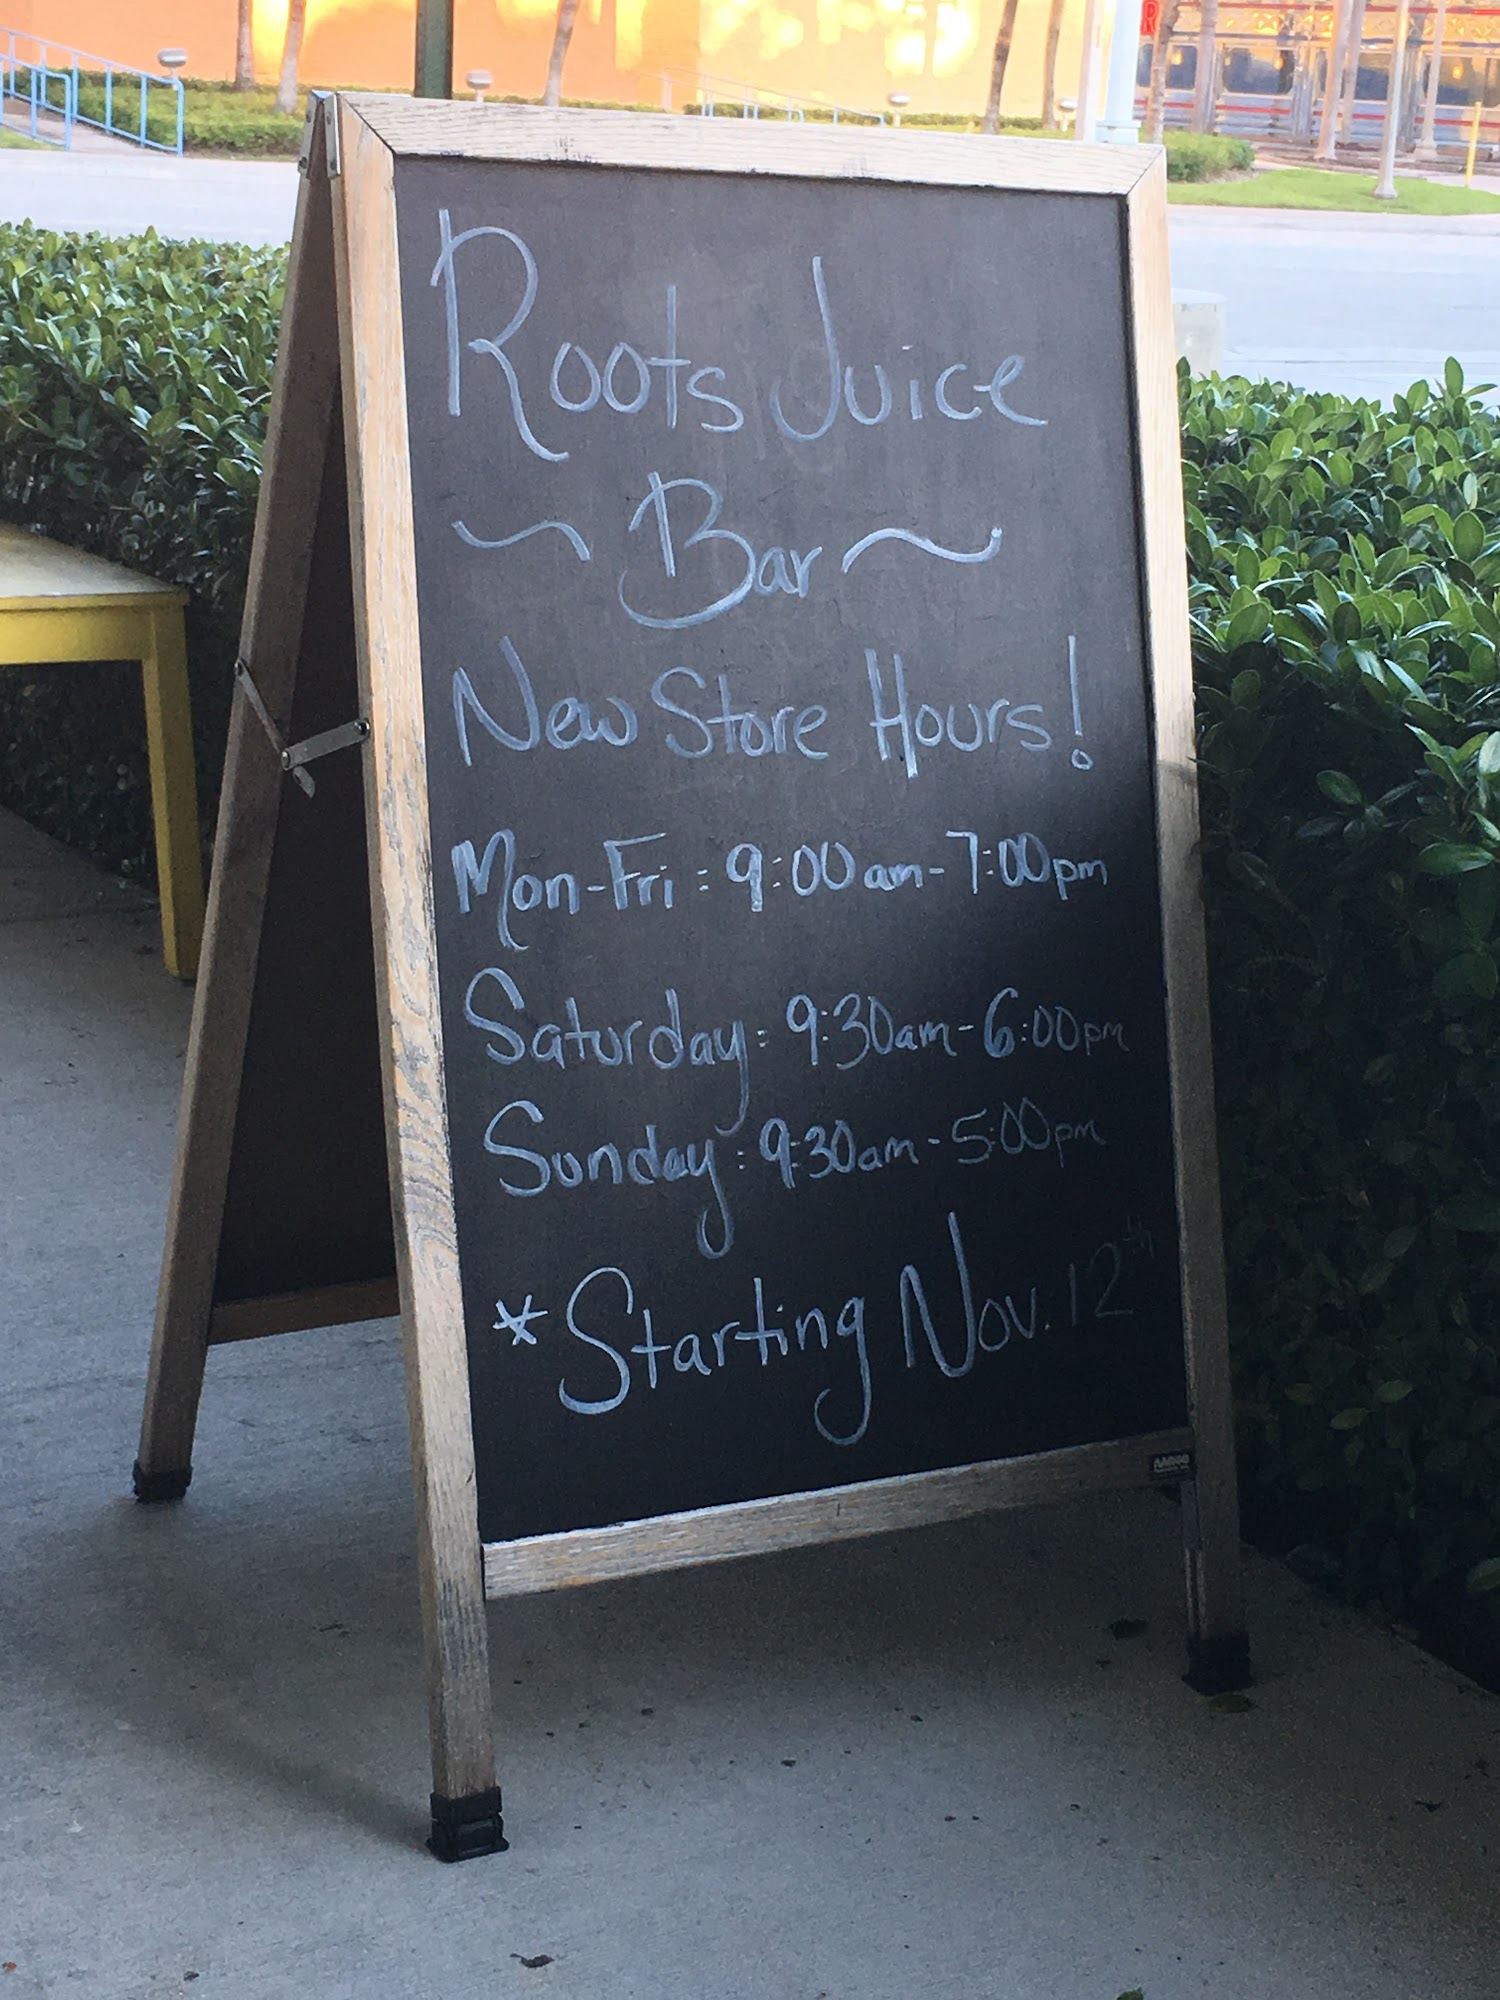 Roots Juice
~ Bar ~
New Store Hours!
Mon-Fri: 9:00am-7:00pm
Saturday: 9:30am-6:00pm
Sunday: 9:30am-5:00pm
*Starting Nov. 12th
AARCO
R